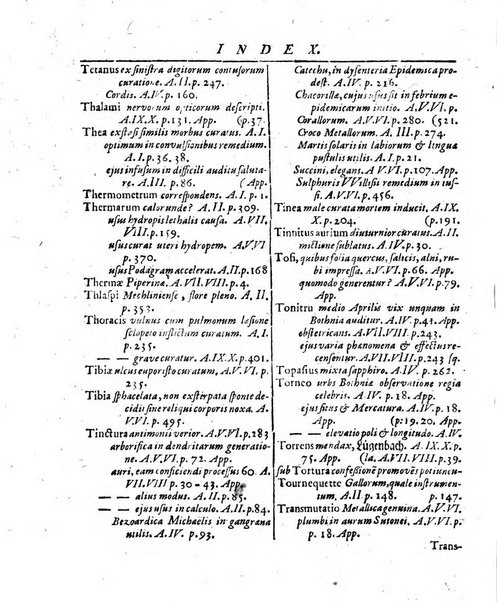 INDEX.
Tetanus ex sinistra digitorum contusorum
curatione. A. II. p. 247.
Cordis. A. IV. p. 160.
Thalami nervorum opticorum descripti.
A. IX. X. p. 131. A. VI. (p. 37.
Thea exstasi similis morbus curatur. A. I.
optimum in convulsionibus remedium.
A. I. p. 36. 38.
ejus infusum in difficili auditu saluta-
re. A. III. p. 86. (App.
Thermometrum correspondens. A. I. p. 1.
Thermarum calor unde? A. III. p. 230.
usus hydropis lethalis causa. A. V.
VI. p. 159.
usus curat uteri hydropem. A. V. VI
p. 370.
usus Podagram accelerat. A. II. p. 168
Thermæ Piperinæ. A. VII. VIII. p. 4.
Thlaspi Mechliniense, flore pleno. A. II.
p. 353.
Thoracis vulnus cum pulmonum læsione
sclopeto inflictum curatum. A. I.
p. 235.
— — grave curatur. A. IX. X. p. 401.
Tibiæ ulcus euporisto curatum. A. V. VI. p
235.
Tibia sphacelata, non exstirpata sponte de-
cidit sine reliqui corporis noxa. A.
V. VI. p. 495.
Tinctura antimonii verior. A. V. VI. p. 283
arborifica in dendritarum generatio-
ne. A. V. VI. p. 72. App.
auri, eam conficiendi processus 60. A.
VII. VIII p. 30 - 43. App.
— — alius modus. A. II. p. 85.
— — ejus usus in calculo. A. II. p. 84.
Bezoardica Michaelis in gangræna
utilis. A. IV. p. 93.
Catechu, in dysenteria Epidemica pro-
dest. A. IV. p. 235.
Chacorellæ, cujus usus sit in febrium e-
pidemicarum initio. A. V. VI. p.
Corallorum. A. V. VI. p. 280. (521.
Croco Metallorum. A. IV. p. 274.
Martis solaris in labiorum & linguæ
pustulis utilis. A. I. p. 21.
Succini, elegans. A V. VI. p. 107. App.
Sulphuris Willisii remedium in tus-
si. A. V. VI. p. 456.
Tinea male curata mortem inducit. A. IX
X. p. 204. (p. 191.
Tinnitus aurium diuturnior curatus. A. II.
mictione sublatus. A. IV. p. 39.
Tofi, quibus folia quercus, salicis, alni, ru-
bi impressa. A. V. VI. p. 66. App.
quomodo generentur? A. V. VI. p. 79.
App.
Tonitru medio Aprilis vix unquam in
Bothnia auditur. A. IV. p. 43. App.
obstetricans. A. VII. VIII. p. 243.
ejus varia phænomena & effectus re-
censentur. A. VII. VIII. p. 243 sq.
Topasius mixta sapphiro. A. IV. p. 262.
Torneo urbs Bothniæ observatione regia
celebris. A. IV. p. 18. App.
ejus situs & Mercatura. A. IV. p. 18.
App. (p. 19. 20. App.
— — elevatio poli & longitudo. A. IV.
Torrens mendax, Lügenbach. A. IX. X. p.
75. App. (la. A. VII. VIII. p. 39.
sub Tortura confessionem promovens potiuncu-
Tournequette Gallorum, quale instrumen-
tum. A. II. p. 148. p. 147.
Transmutatio Metallica genuina. A. V. VI.
plumbi in aurum Sutonei. A. V. VI.
p. 18. App.
Trans-